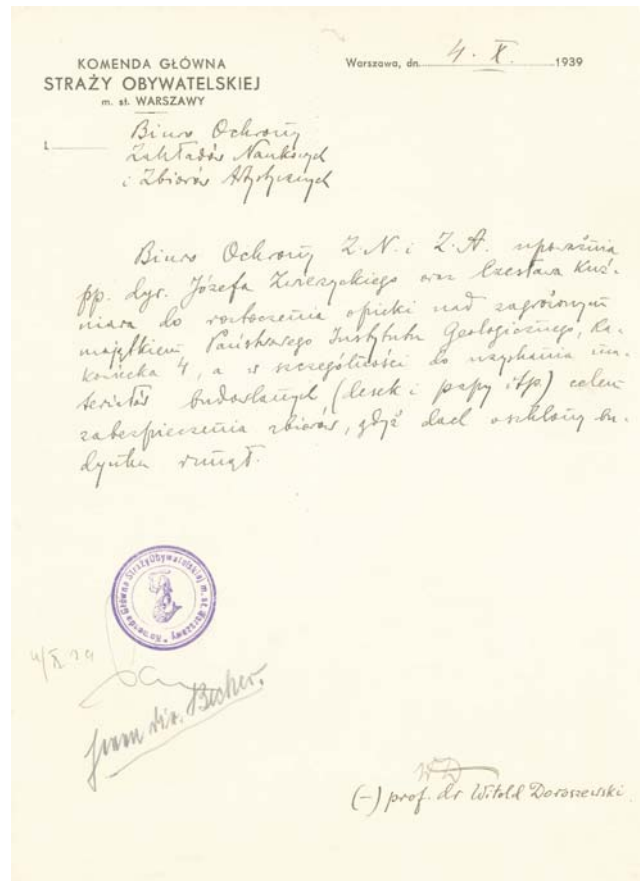 KOMENDA GŁÓWNA
STRAŻY OBYWATELSKIEJ
m. st. WARSZAWY
Warszawa, dn. 4. X. 1939
L.
Biuro Ochrony
Zakładów Naukowych
i Zbiorów Artystycznych
Biuro Ochrony Z.N. i Z.A. upoważnia
pp. dyr. Józefa Zwierzyckiego oraz Czesława Kuź-
niara do roztoczenia opieki nad zagrożonym
majątkiem Państwowego Instytutu Geologicznego, Ra-
kowiecka 4, a w szczególności do uzyskania ma-
teriałów budowlanych (desek i papy itp.) celem
zabezpieczenia zbiorów, gdyż dach oszklony bu-
dynku runął.
Komenda Główna Straży Obywatelskiej m. st. Warszawy
4/X 39
Herrn Dir. Becher.
WD
(-) prof. dr Witold Doroszewski